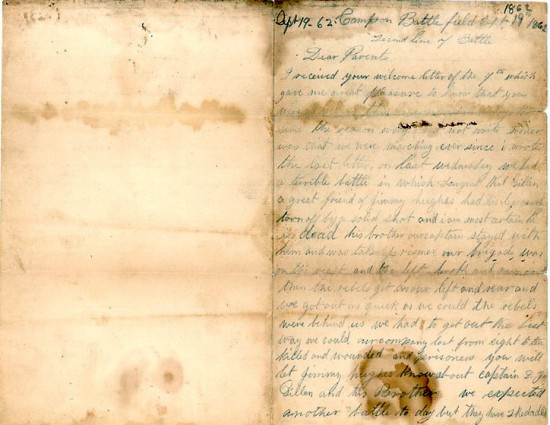 1862
Sept 19-62. Camp on Battle field Sept 19 1862
Second Line of Battle
Dear Parents
I received your welcome letter of the 9th which
gave me great pleasure to know that you
were
the reason why i did not write sooner
was that we were marching ever since i wrote
the last letter, on last wednesday we had
a terrible battle in which Sargent Phil Gillen
a great friend of Jimmy hughes had his
torn off by a solid shot and i am most certain he
is dead his brother our captain stayed with
him and was taken prisoner our brigade was
on the right and the left
then the rebels got on our left and rear and
we got out as quick as we could the rebels
were behind us we had to get out the best
way we could our company lost from eight to ten
killed and wounded and prisoners you will
let Jimmy hughes know about captain
Gillen and his Brother we expected
another battle to day but they have skedadled